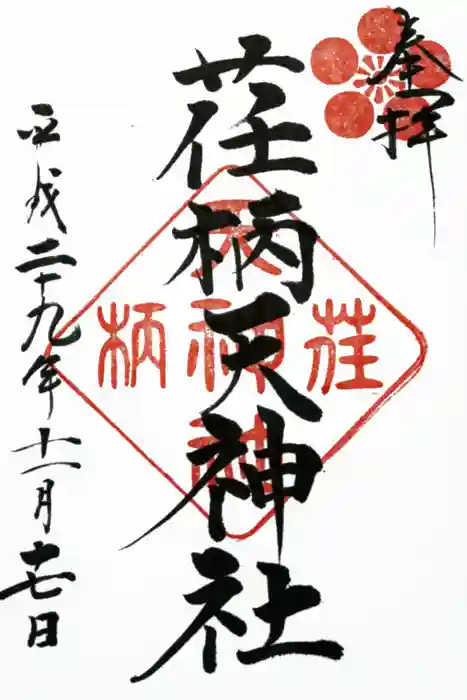 奉拝
荏柄天神社
天
荏神柄
社
平成二十九年十一月十七日